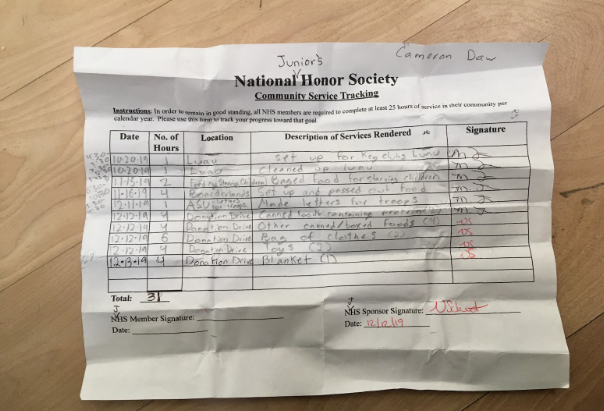 Junior's
Cameron Daw
National Honor Society
Community Service Tracking
Instructions: In order to remain in good standing, all NHS members are required to complete at least 25 hours of service in their community per
calendar year. Please use this form to track your progress toward that goal.
Date No. of Hours Location Description of Services Rendered Signature
10-20-19 1 Luau set up for Key club Luau
10-20-19 1 Luau cleaned up luau
11-15-19 2 Feed my Starving Children Baged food for starving children
11-16-19 4 set up and passed out food
12-11-19 1 ASU Made letters for troops
12-12-19 4 Donation Drive Canned foods containing
12-12-19 4 Donation Drive Other canned/boxed foods (4)
12-12-19 6 Donation Drive Bag of clothes (2)
12-12-19 4 Donation Drive Toys (2)
12-13-19 4 Donation Drive Blanket (1)
Total: 31
J
NHS Member Signature:
Date:
J
NHS Sponsor Signature:
Date: 12/12/19